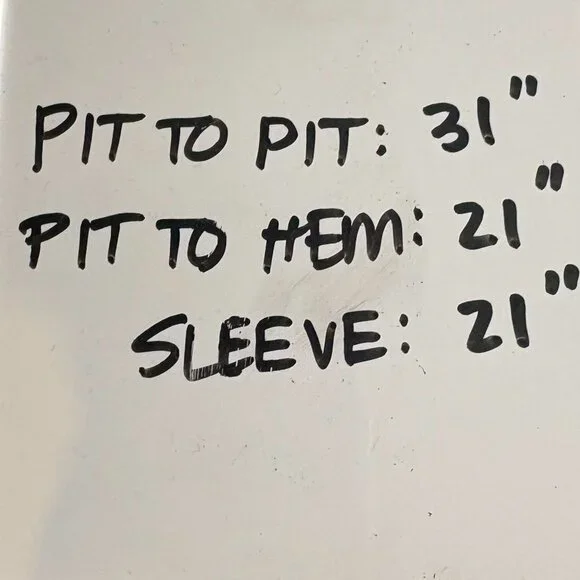 PIT TO PIT: 31"
PIT TO HEM: 21"
SLEEVE: 21"